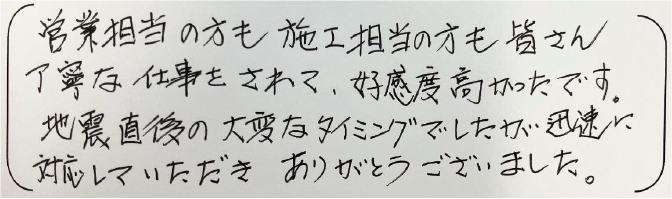 営業担当の方も 施工担当の方も 皆さん
丁寧な仕事をされて、好感度高かったです。
地震直後の大変なタイミングでしたが 迅速に
対応していただき ありがとうございました。